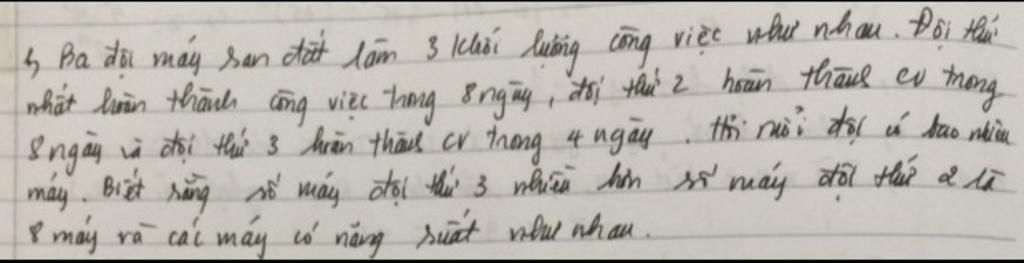 b, Ba đội máy san đất làm 3 khối lượng công việc như nhau. Đội thứ
nhất hoàn thành công việc trong 8 ngày, đội thứ 2 hoàn thành cv trong
8 ngày và đội thứ 3 hoàn thành cv trong 4 ngày. Hỏi mỗi đội có bao nhiêu
máy. Biết rằng số máy đội thứ 3 nhiều hơn số máy đội thứ 2 là
8 máy và các máy có năng suất như nhau.